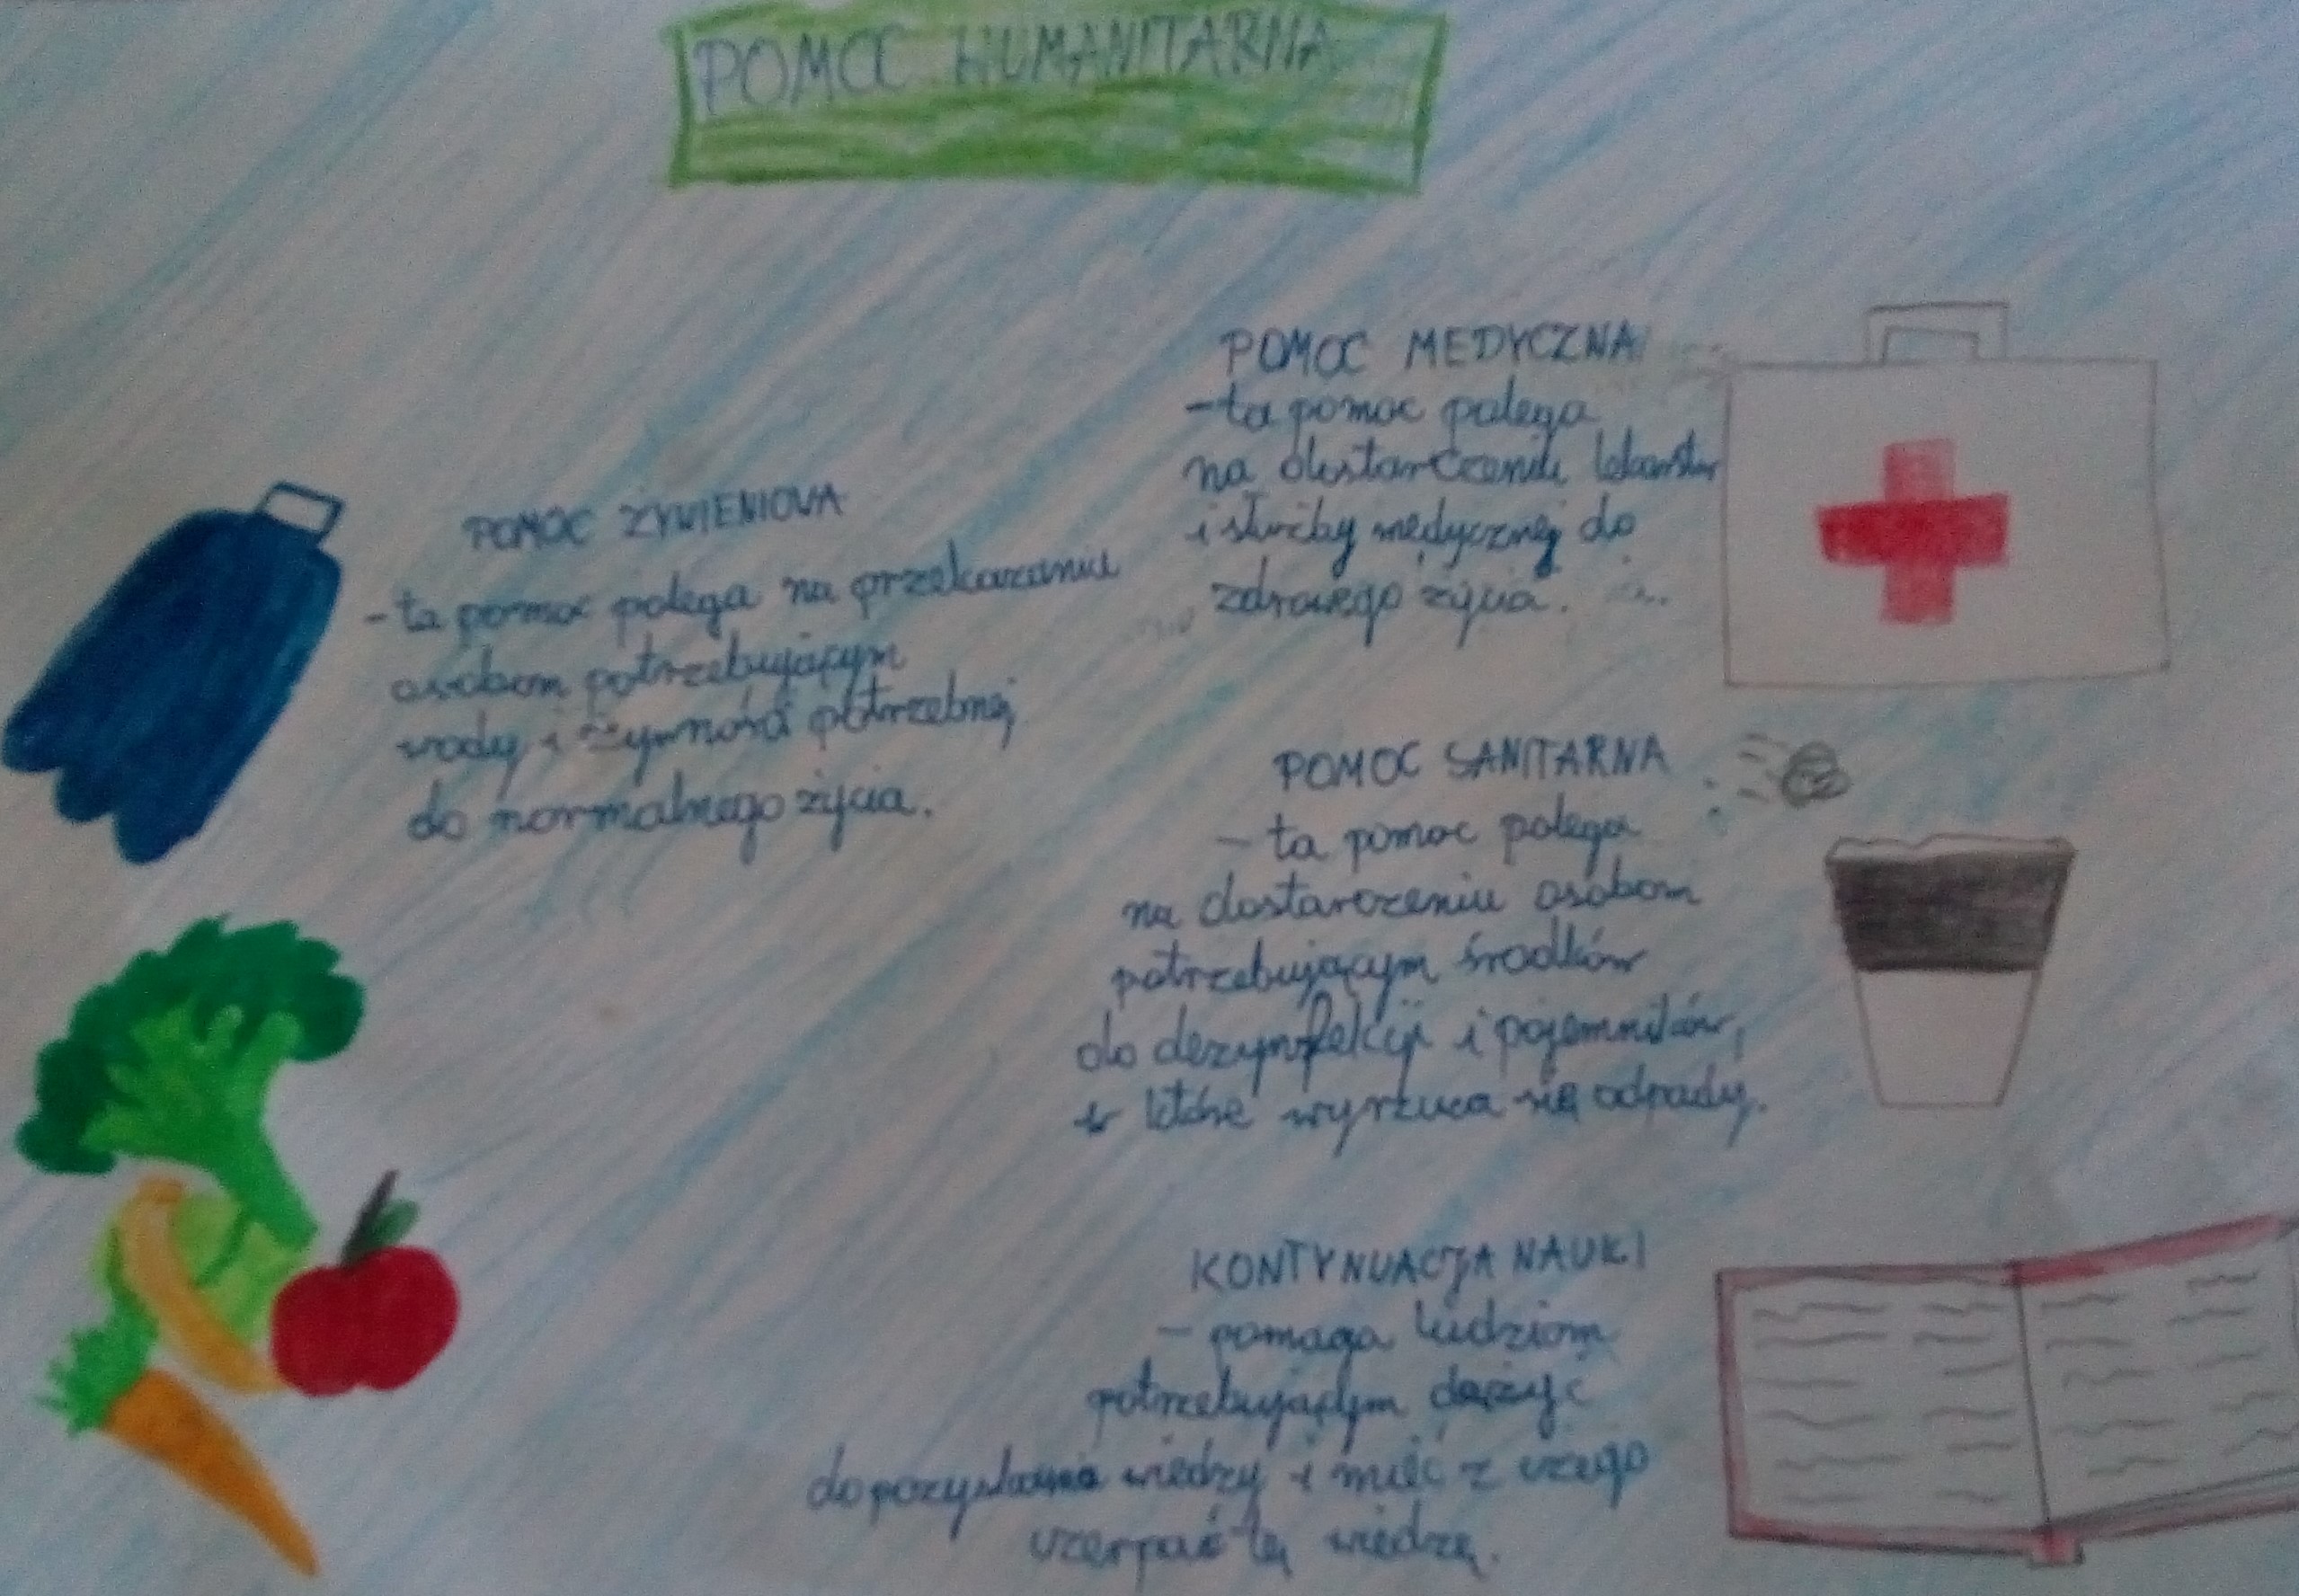 POMOC HUMANITARNA
POMOC ŻYWIENIOWA
- ta pomoc polega na przekazaniu
osobom potrzebującym
wody i żywności potrzebnej
do normalnego życia.
POMOC MEDYCZNA
- ta pomoc polega
na dostarczeniu lekarstw
i służby medycznej do
zdrowego życia.
POMOC SANITARNA
- ta pomoc polega
na dostarczeniu osobom
potrzebującym środków
do dezynfekcji i pojemników,
w które wyrzuca się odpady.
KONTYNUACJA NAUKI
- pomaga ludziom
potrzebującym dążyć
do pozyskania wiedzy i mieć z czego
czerpać tę wiedzę.